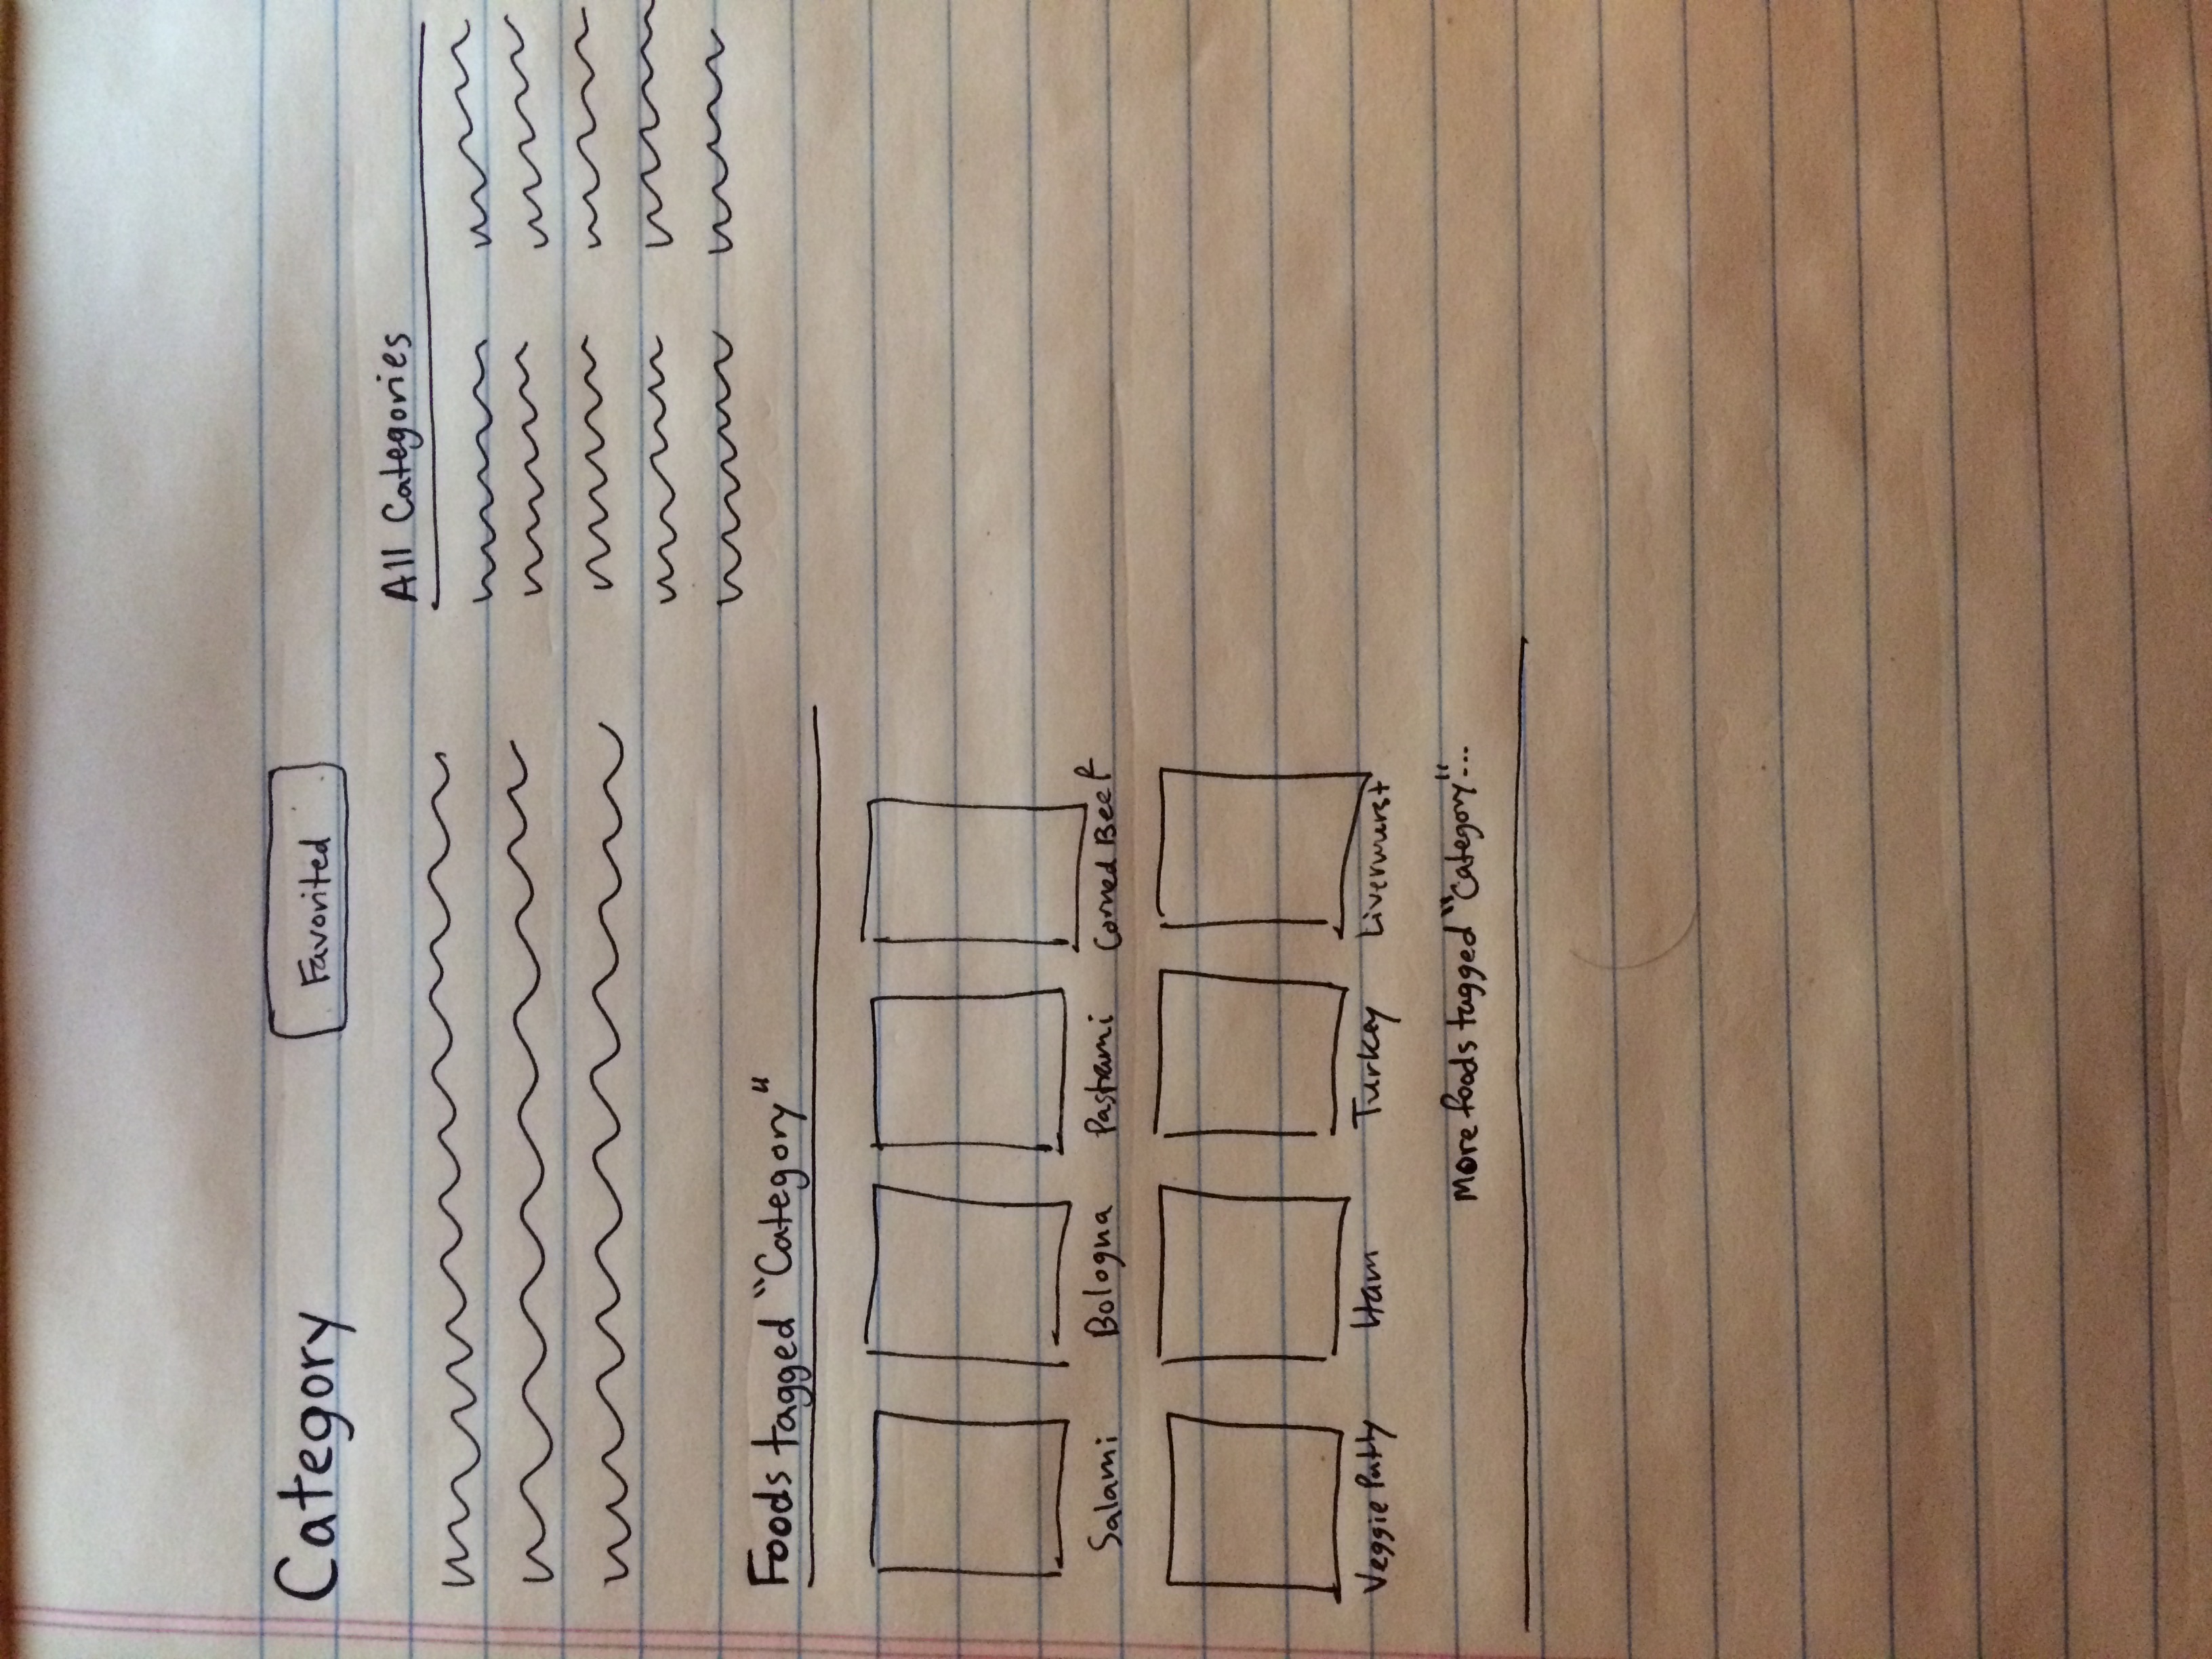 Category
Favorited
All Categories
Foods tagged "Category"
Salami Bologna Pastrami Corned Beef
Veggie Patty Ham Turkey Liverwurst
More foods tagged "Category"...